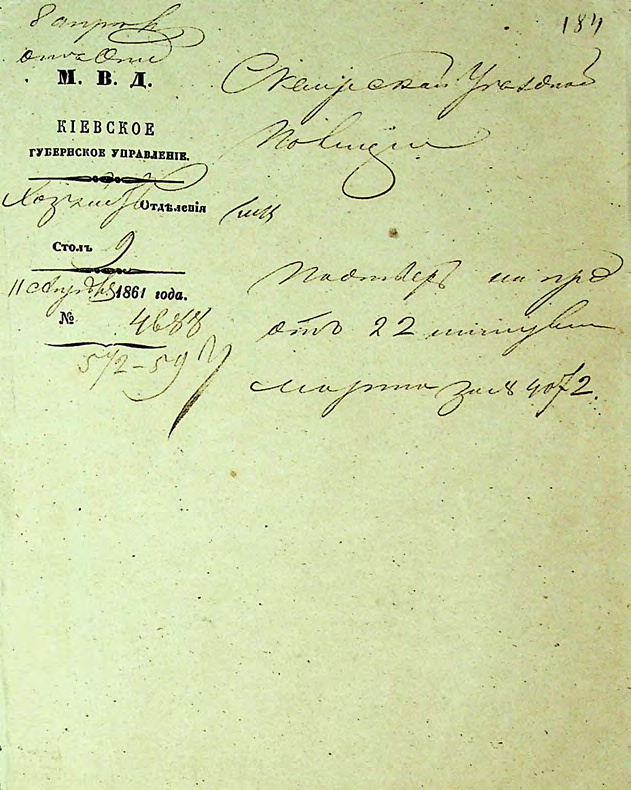 184
8 апр
М. В. Д.
КІЕВСКОЕ
ГУБЕРНСКОЕ УПРАВЛЕНІЕ.
Отдѣленія
Столъ 9
11 Апрѣля 1861 года.
№ 4688
572-59
Сквирской Уѣздной
Полиціи
Подтвер на пред
отъ 22 минувш
марта за № 4072.